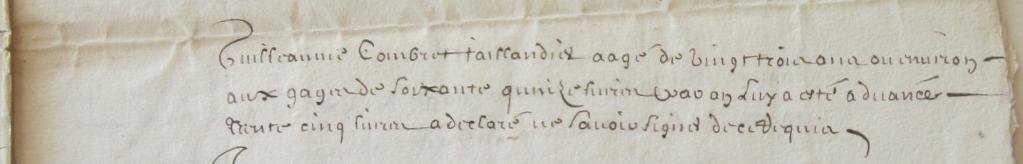 Guilleaume Combret taillandier aagé de vingt trois ans ou environ
aux gages de soixante quinze livres par an Luy a esté advancé
trente cinq livres a declaré ne savoir signer de ce requis